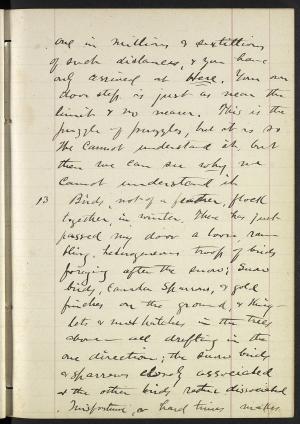 and in millions & sextillions
of such distances, & you have
only arrived at Here. Your own
door step is just as near the
limit & no nearer. This is the
puzzle of puzzles, but it is so
We cannot understand it, but
then we can see why we
cannot understand it.
13 Birds, not of a feather, flock
together, in winter. There has just
passed my door a loose, ram
bling, heterogeneous troop of birds
foraging after the snow; Snow
birds, Canada Sparrows, & gold
finches on the ground, & King-
lets & nuthatches in the trees
above — all drifting in the
one direction; the snow birds
& sparrows closely associated
& the other birds rather dissociated
Misfortune, or hard times makes